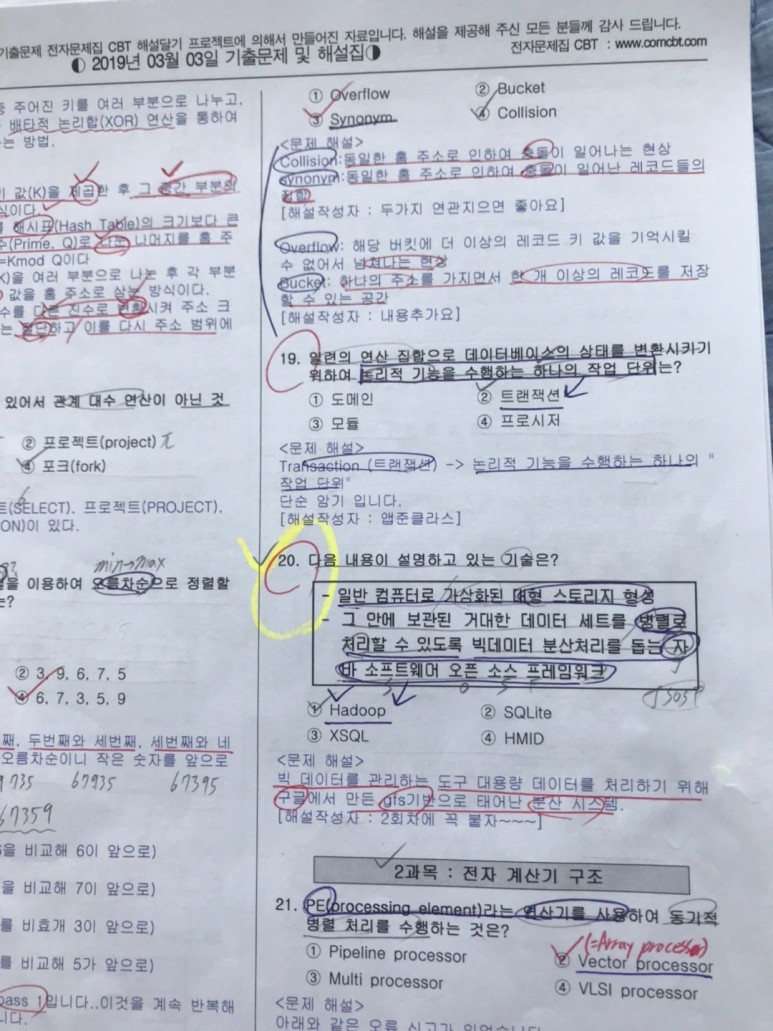 기출문제 전자문제집 CBT 해설달기 프로젝트에 의해서 만들어진 자료입니다. 해설을 제공해 주신 모든 분들께 감사 드립니다.
◐ 2019년 03월 03일 기출문제 및 해설집◑
전자문제집 CBT : www.comcbt.com
주어진 키를 여러 부분으로 나누고,
배타적 논리합(XOR) 연산을 통하여
는 방법.
값(K)을 제곱한 후 그 중간 부분의
식이다.
해시표(Hash Table)의 크기보다 큰
수(Prime, Q)로 나눈 나머지를 홈 주
=Kmod Q이다
K)을 여러 부분으로 나눈 후 각 부분
값을 홈 주소로 삼는 방식이다.
수를 다른 진수로 변환시켜 주소 크
는 절단하고 이를 다시 주소 범위에
있어서 관계 대수 연산이 아닌 것
② 프로젝트(project) π
④ 포크(fork)
트(SELECT). 프로젝트(PROJECT).
ON)이 있다.
min→max
을 이용하여 오름차순으로 정렬할
는?
② 3, 9, 6, 7, 5
④ 6, 7, 3, 5, 9
째, 두번째와 세번째, 세번째와 네
오름차순이니 작은 숫자를 앞으로
9735 67935 67395
67359
을 비교해 6이 앞으로)
을 비교해 7이 앞으로)
를 비효개 3이 앞으로)
를 비교해 5가 앞으로)
pass 1입니다..이것을 계속 반복해
니다.
① Overflow ② Bucket
③ Synonym ④ Collision
<문제 해설>
Collision:동일한 홈 주소로 인하여 충돌이 일어나는 현상
synonym:동일한 홈 주소로 인하여 충돌이 일어난 레코드들의
집합
[해설작성자 : 두가지 연관지으면 좋아요]
Overflow: 해당 버킷에 더 이상의 레코드 키 값을 기억시킬
수 없어서 넘쳐나는 현상
Bucket: 하나의 주소를 가지면서 한 개 이상의 레코드를 저장
할 수 있는 공간
[해설작성자 : 내용추가요]
19. 일련의 연산 집합으로 데이터베이스의 상태를 변환시키기
위하여 논리적 기능을 수행하는 하나의 작업 단위는?
① 도메인 ② 트랜잭션
③ 모듈 ④ 프로시저
<문제 해설>
Transaction (트랜잭션) -> 논리적 기능을 수행하는 하나의 "
작업 단위"
단순 암기 입니다.
[해설작성자 : 앱준클라스]
20. 다음 내용이 설명하고 있는 기술은?
- 일반 컴퓨터로 가상화된 대형 스토리지 형성
- 그 안에 보관된 거대한 데이터 세트를 병렬로
처리할 수 있도록 빅데이터 분산처리를 돕는 자
바 소프트웨어 오픈 소스 프레임워크
① Hadoop ② SQLite
③ XSQL ④ HMID
<문제 해설>
빅 데이터를 관리하는 도구 대용량 데이터를 처리하기 위해
구글에서 만든 gfs기반으로 태어난 분산 시스템.
[해설작성자 : 2회차에 꼭 붙자~~~]
2과목 : 전자 계산기 구조
21. PE(processing element)라는 연산기를 사용하여 동기적
병렬 처리를 수행하는 것은?
(=Array processor)
① Pipeline processor ② Vector processor
③ Multi processor ④ VLSI processor
<문제 해설>
아래와 같은 오류 신고가 있었습니다.